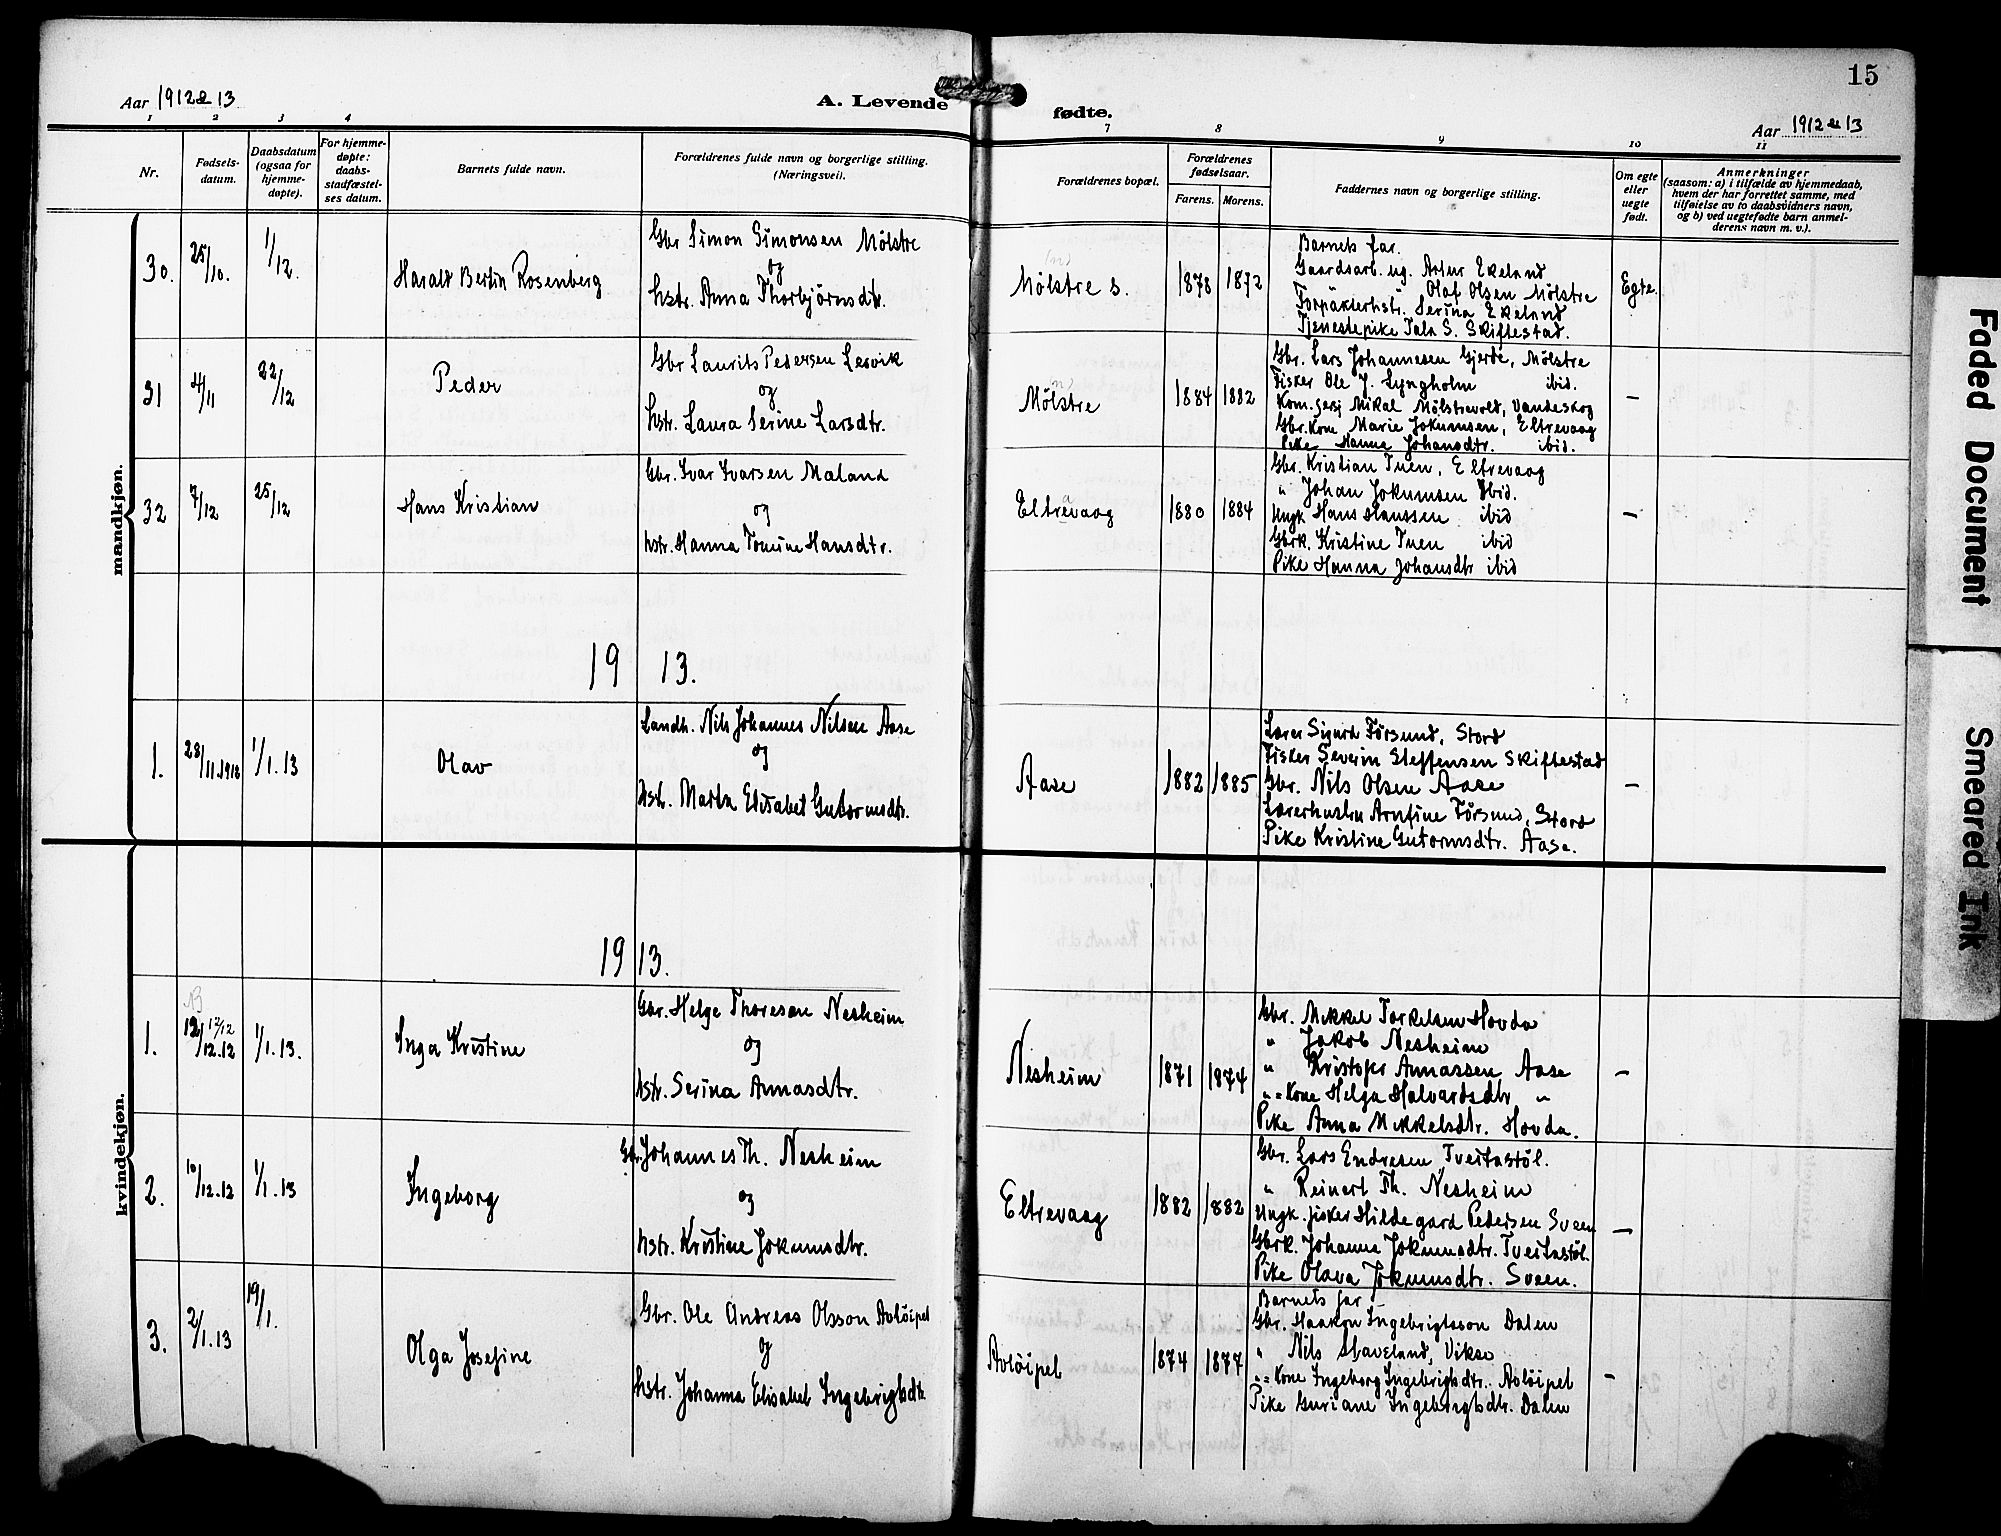 15
Aar 1912 & 13
A. Levende fødte.
Aar 1912 & 13
1 2 3 4 7 8 9 10 11
Nr.
Fødsels-
datum.
Daabsdatum
(ogsaa for
hjemme-
døpte).
For hjemme-
døpte:
daabs-
stadfæstel-
ses datum.
Barnets fulde navn.
Forældrenes fulde navn og borgerlige stilling.
(Næringsvei).
Forældrenes bopæl.
Forældrenes
fødselsaar.
Farens. Morens.
Faddernes navn og borgerlige stilling.
Om egte
eller
uegte
født.
Anmerkninger
(saasom: a) i tilfælde av hjemmedaab,
hvem der har forrettet samme, med
tilføielse av to daabsvidners navn,
og b) ved uegtefødte barn anmel-
derens navn m. v.).
mandkjøn.
30. 25/10. 1/12. Harald Bertin Rosenberg
Gbr Simon Simonsen Mölstre
og
hstr. Anna Thorbjörnsdtr.
Mölstre s. 1878 1872
Barnets far.
Gaardsarb. ug. Artur Ekeland
Olaf Olsen Mölstre
Forpakterhstr. Serina Ekeland
Tjenestepike Tala S. Skiftestad.
Egte.
31 4/11 22/12 Peder
Gbr Laurits Pedersen Lesvik
og
hstr. Laura Serine Larsdtr.
(n)
Mölstre 1884 1882
Gbr. Lars Johannesen Gjerde, Mölstre
Fisker Ole J. Lyngholm ibid.
Kom. serj Mikal Mölstrevold, Vandeskog
Gbr. Kone Marie Jokumsen, Eltrevaag
Pike Hanna Johansdtr. ibid.
—
32 7/12 25/12 Hans Kristian
Gbr. Ivar Ivarsen Maland
og
hstr. Hanna Tomine Hansdtr.
Eltrevaag 1880 1884
Gbr. Kristian Tuen, Eltrevaag
" Johan Jokumsen Ibid.
Ungk Hans Hanssen ibid
Gbrk. Kristine Tuen ibid
Pike Hanna Johansdtr ibid
—
19 13.
1. 28/11.1912 1/1.13 Olav
Landh. Nils Johannes Nilsen Aase
og
hstr. Marta Elisabet Gutormsdtr.
Aase 1882 1885
Lærer Sigurd Försund, Stord
Fisker Severin Steffensen Skiftestad
Gbr. Nils Olsen Aase
Lærerhustru Arnfine Försund, Stord
Pike Kristine Gutormsdtr. Aase.
—
kvindekjøn.
19 13.
1. 12/12.12 12/12 1/1.13. Inga Kristine
Gbr. Helge Thoresen Nesheim
og
hstr. Serina Amnasdtr.
Nesheim 1871 1874
Gbr. Mikkel Torkelsen Hovda
" Jakob Nesheim
" Kristofer Amnassen Aase
" = Kone Helga Halvardsdtr "
Pike Anna Mikkelsdtr. Hovda.
—
2. 10/12.12 1/1.13 Ingeborg
Gbr. Johannes Th. Nesheim
og
hstr. Kristine Jokumsdtr.
Eltrevaag 1882 1882
Gbr. Lars Endresen, Tveitastöl.
" Reinert Th. Nesheim
Ungk. fisker Hildegard Pedersen Sveen
Gbrk. Johanna Jokumsdtr. Tveitastöl.
Pike Olava Jokumsdtr. Sveen.
—
3. 2/1.13 19/1. Olga Josefine
Gbr. Ole Andreas Olsson Avlöipet
og
hstr. Johanna Elisabet Ingebrigtsdtr.
Avlöipet 1874 1877
Barnets far
Gbr. Haakon Ingebrigtsson Dalen
" Nils Haveland, Vikse
" = Kone Ingeborg Ingebrigtsdtr. Avlöipet
Pike Guriane Ingebrigtsdtr. Dalen
—
Faded Document
Smeared Ink